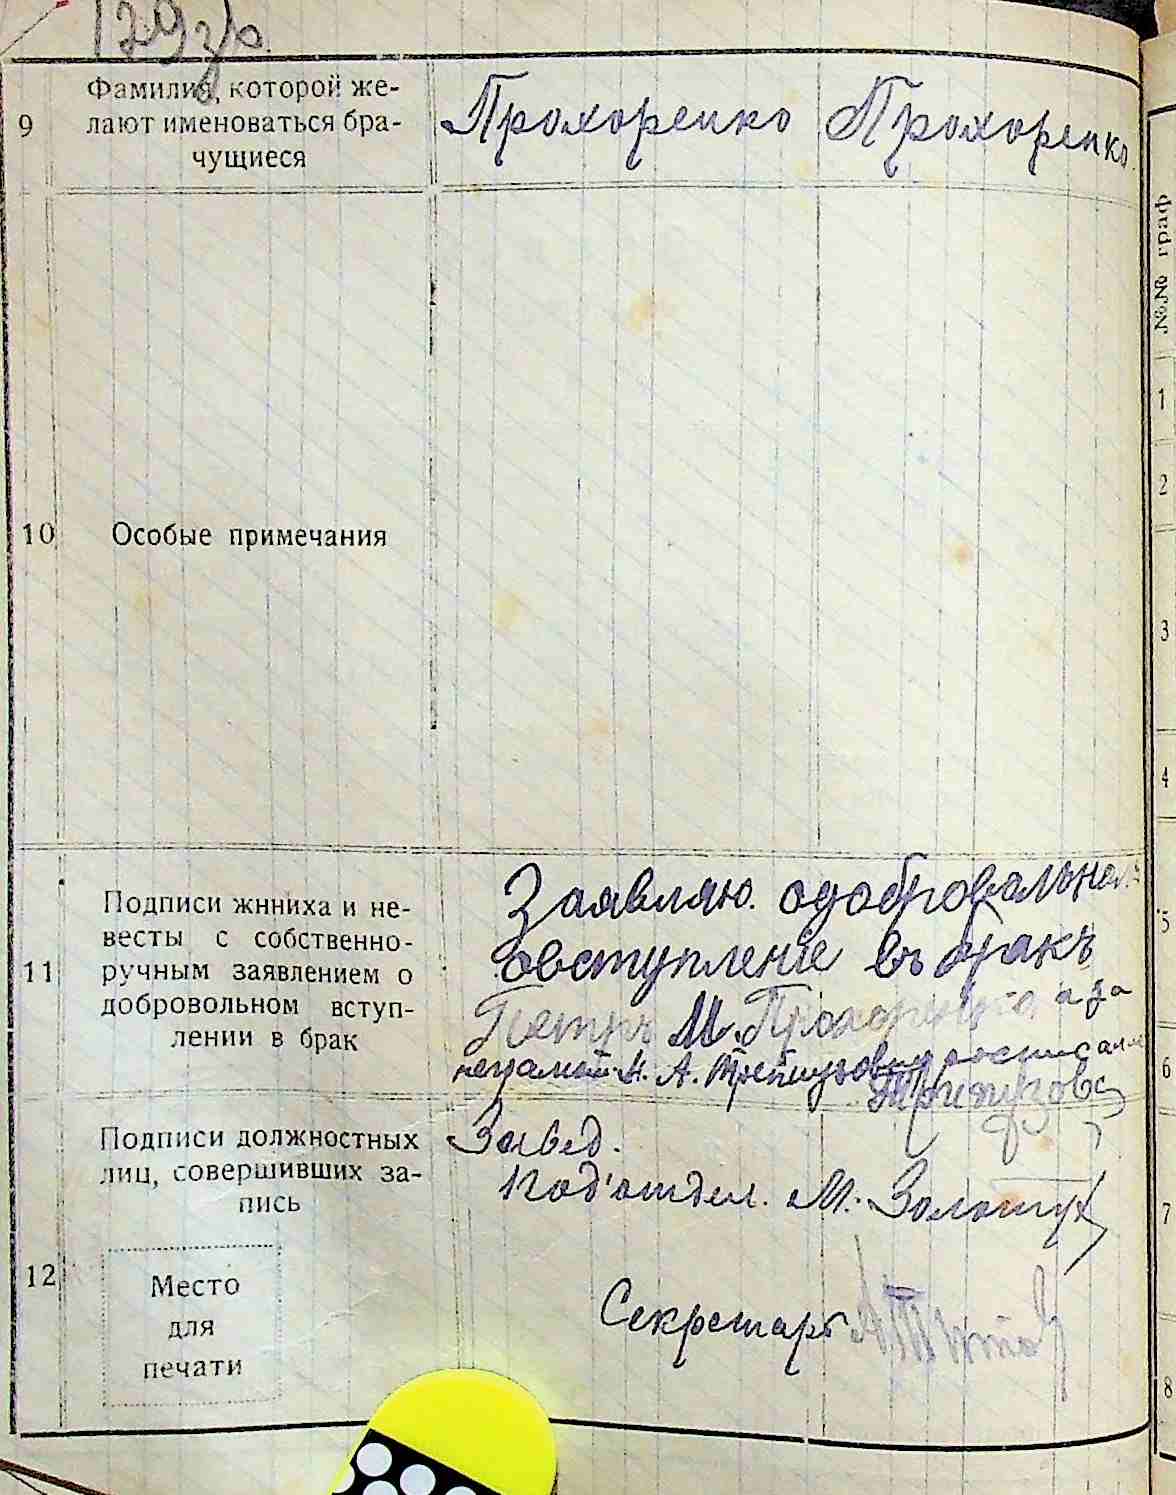 129 зр.
9
Фамилия, которой же-
лают именоваться бра-
чущиеся
Прохоренко Прохоренко
10
Особые примечания
11
Подписи жнниха и не-
весты с собственно-
ручным заявлением о
добровольном вступ-
лении в брак
Заявляю. одобровальном
овступление въ бракъ
Петръ М. Прохоренко а за
неграмот. Н. А. расписался
12
Подписи должностных
лиц, совершивших за-
пись
Завед.
Под'отдел. М. Золотух
Секретарь
Место
для
печати
№№ граф
1
2
3
4
5
6
7
8